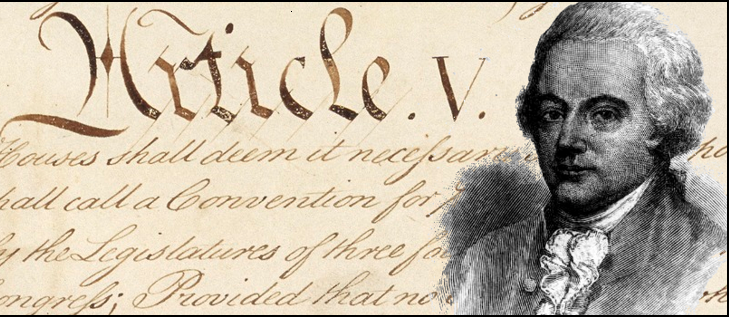 Article. V.
Houses shall deem it neceſsary
hall call a Convention for
y the Legislatures of three fo
ongreſs; Provided that no